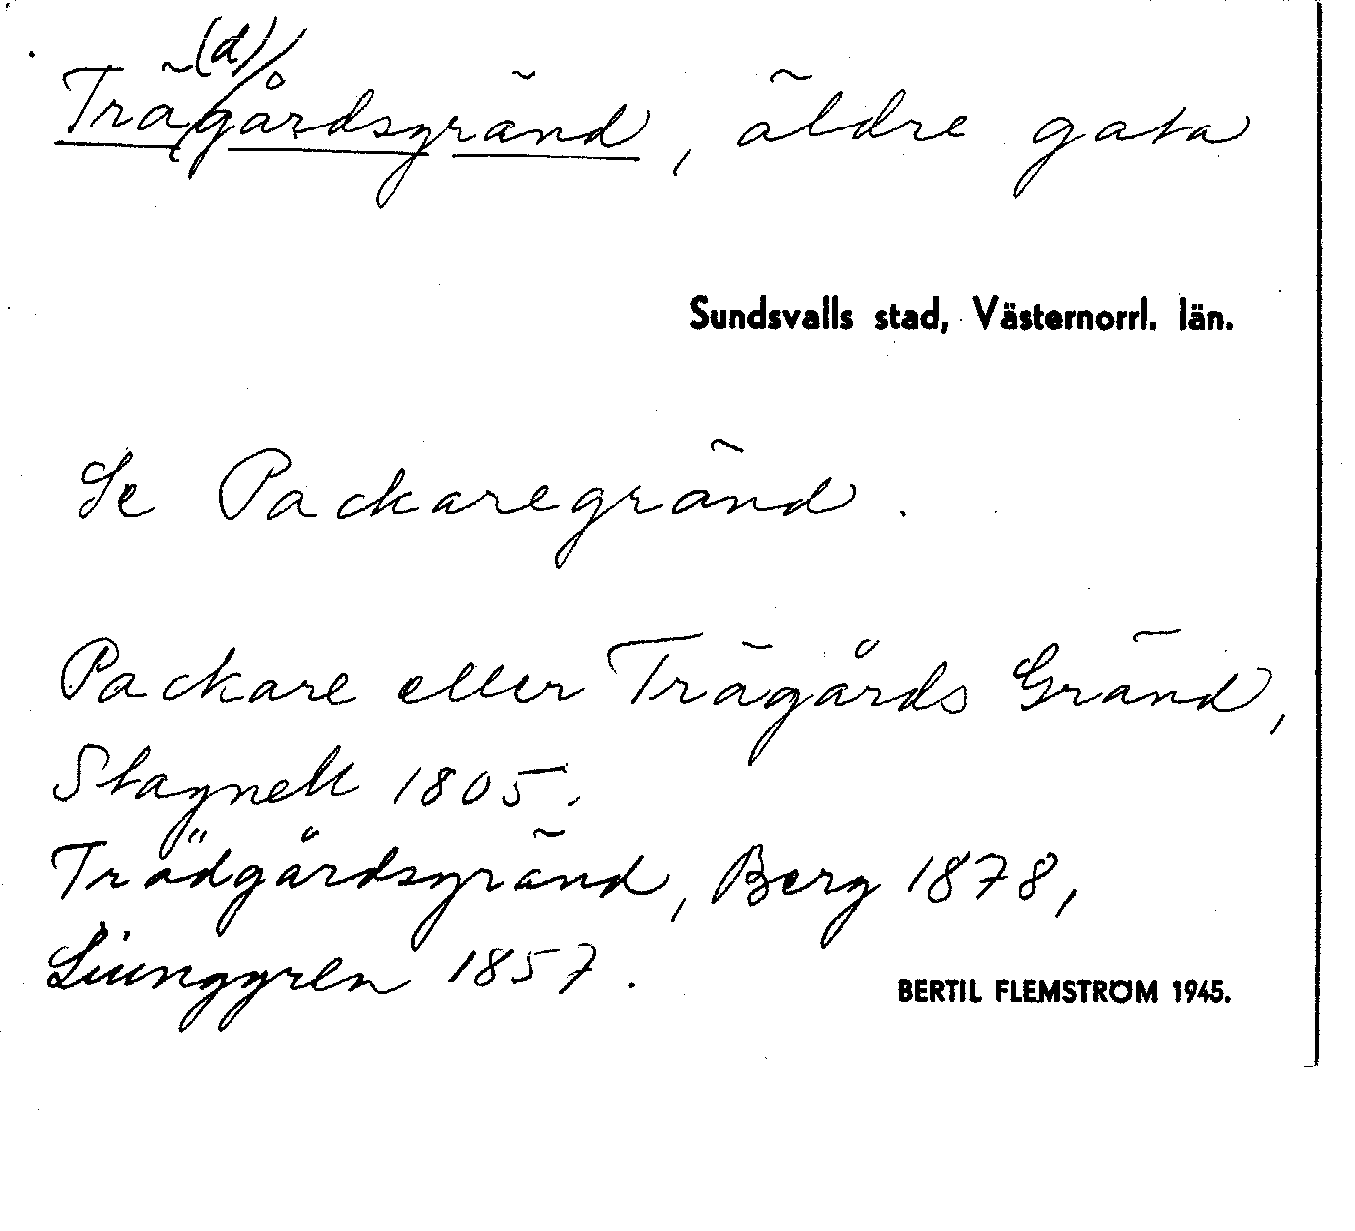 Trä(d)gårdsgränd, äldre gata
Sundsvalls stad, Västernorrl. län.
Se Packaregränd.
Packare eller Trägårds Gränd,
Stagnell 1805.
Trädgårdsgränd, Berg 1878,
Ljunggren 1857.
BERTIL FLEMSTRÖM 1945.